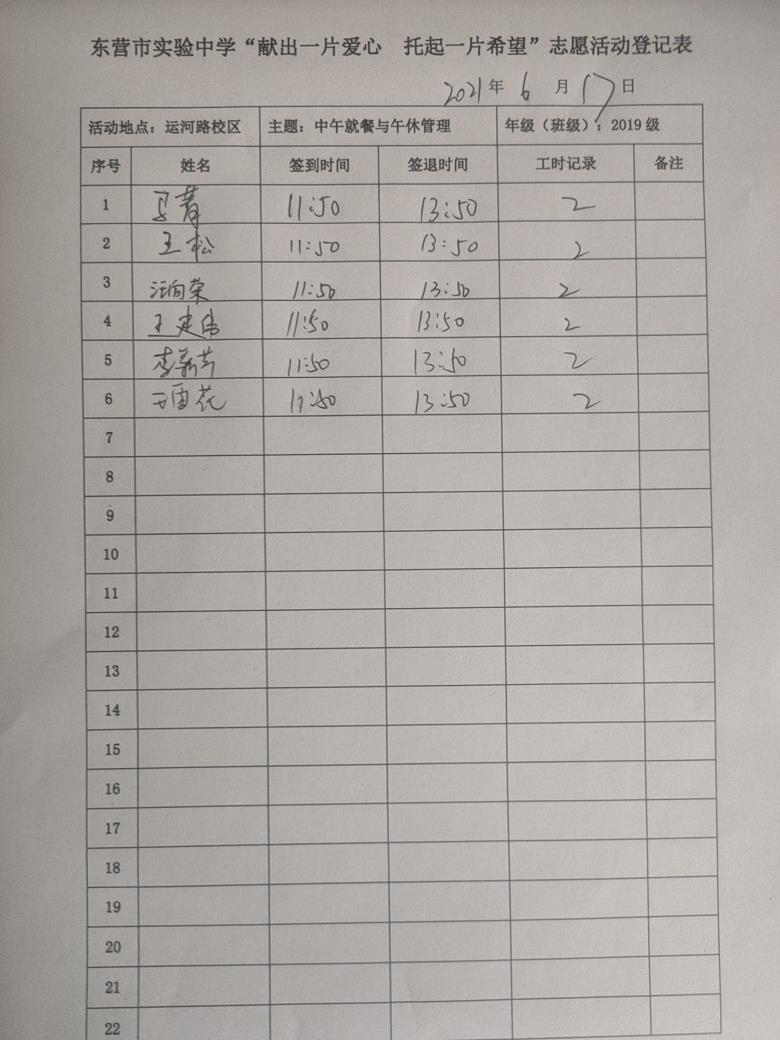 东营市实验中学“献出一片爱心 托起一片希望”志愿活动登记表
2021年 6 月 17日
活动地点：运河路校区 主题：中午就餐与午休管理 年级（班级）：2019 级
序号 姓名 签到时间 签退时间 工时记录 备注
1 11:50 13:50 2
2 王松 11:50 13:50 2
3 汪向荣 11:50 13:50 2
4 王建伟 11:50 13:50 2
5 11:50 13:50 2
6 王雪花 11:50 13:50 2
7
8
9
10
11
12
13
14
15
16
17
18
19
20
21
22